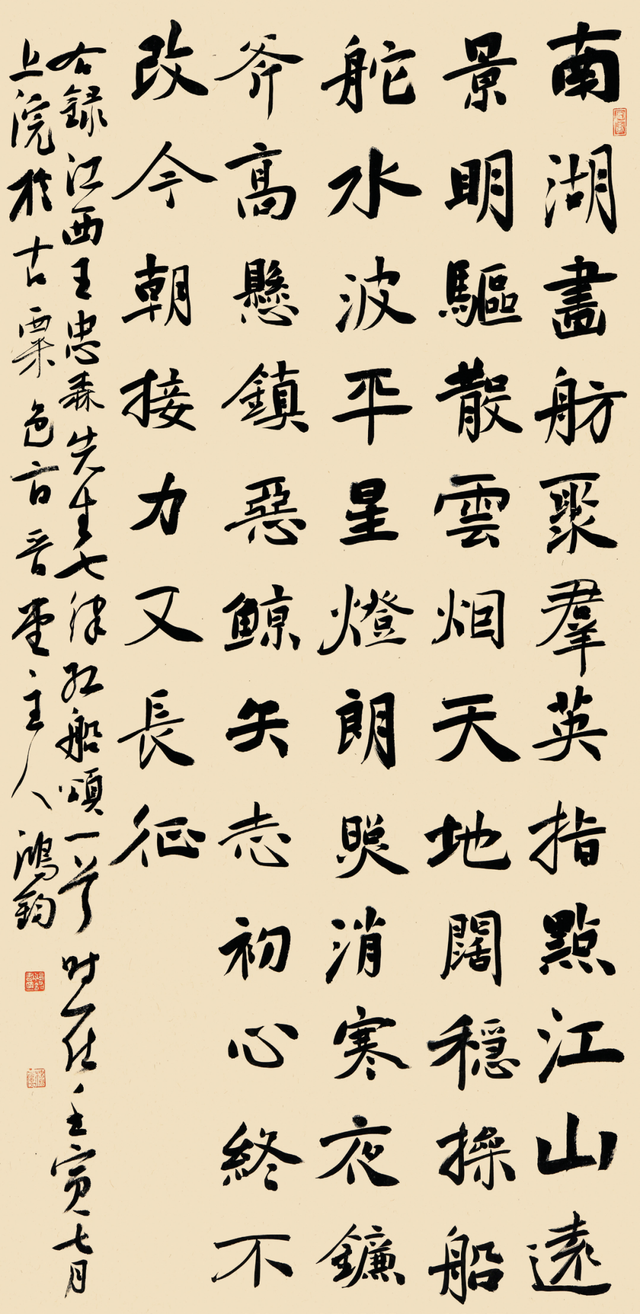 南湖畫舫聚羣英指點江山遠
景明驅散雲烟天地闊穩操船
舵水波平星燈朗照消寒夜鐮
斧高懸鎮惡鲸矢志初心終不
改今朝接力又長征
右録江西王忠森先生七律紅船頌一首时在壬寅七月
上浣於古粟邑百晉堂主人鴻鈞